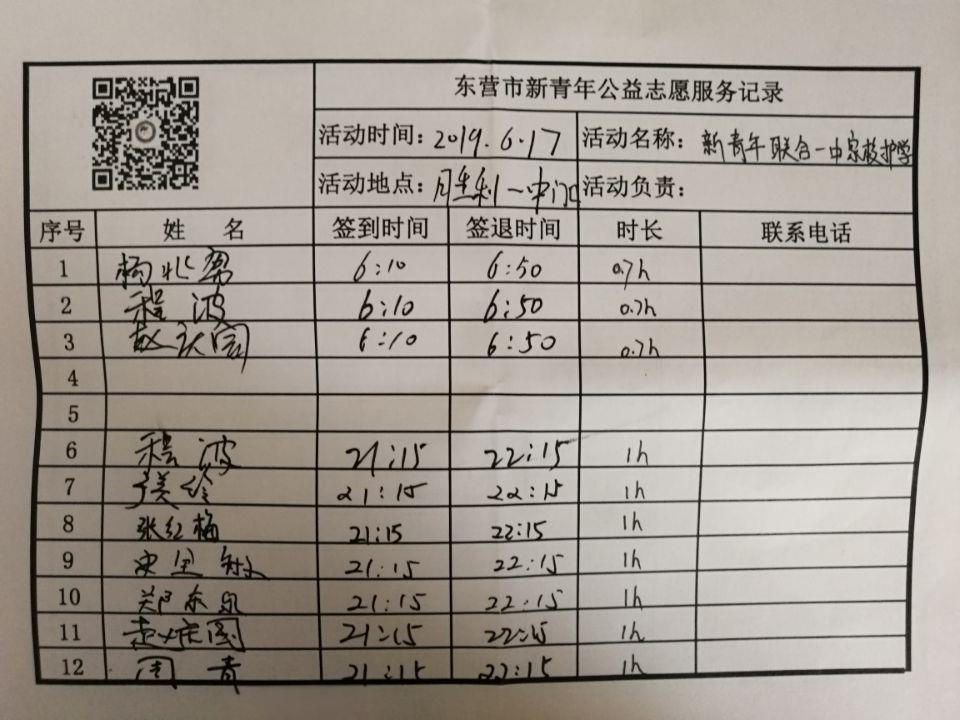 东营市新青年公益志愿服务记录
活动时间：2019.6.17 活动名称：新青年联合一中家校护学
活动地点：胜利一中门口 活动负责：
序号 姓 名 签到时间 签退时间 时长 联系电话
1 杨兆 6:10 6:50 0.7h
2 程波 6:10 6:50 0.7h
3 赵 6:10 6:50 0.7h
4
5
6 程波 21:15 22:15 1h
7 21:15 22:15 1h
8 张红梅 21:15 22:15 1h
9 21:15 22:15 1h
10 郑东 21:15 22:15 1h
11 21:15 22:15 1h
12 周青 21:15 22:15 1h